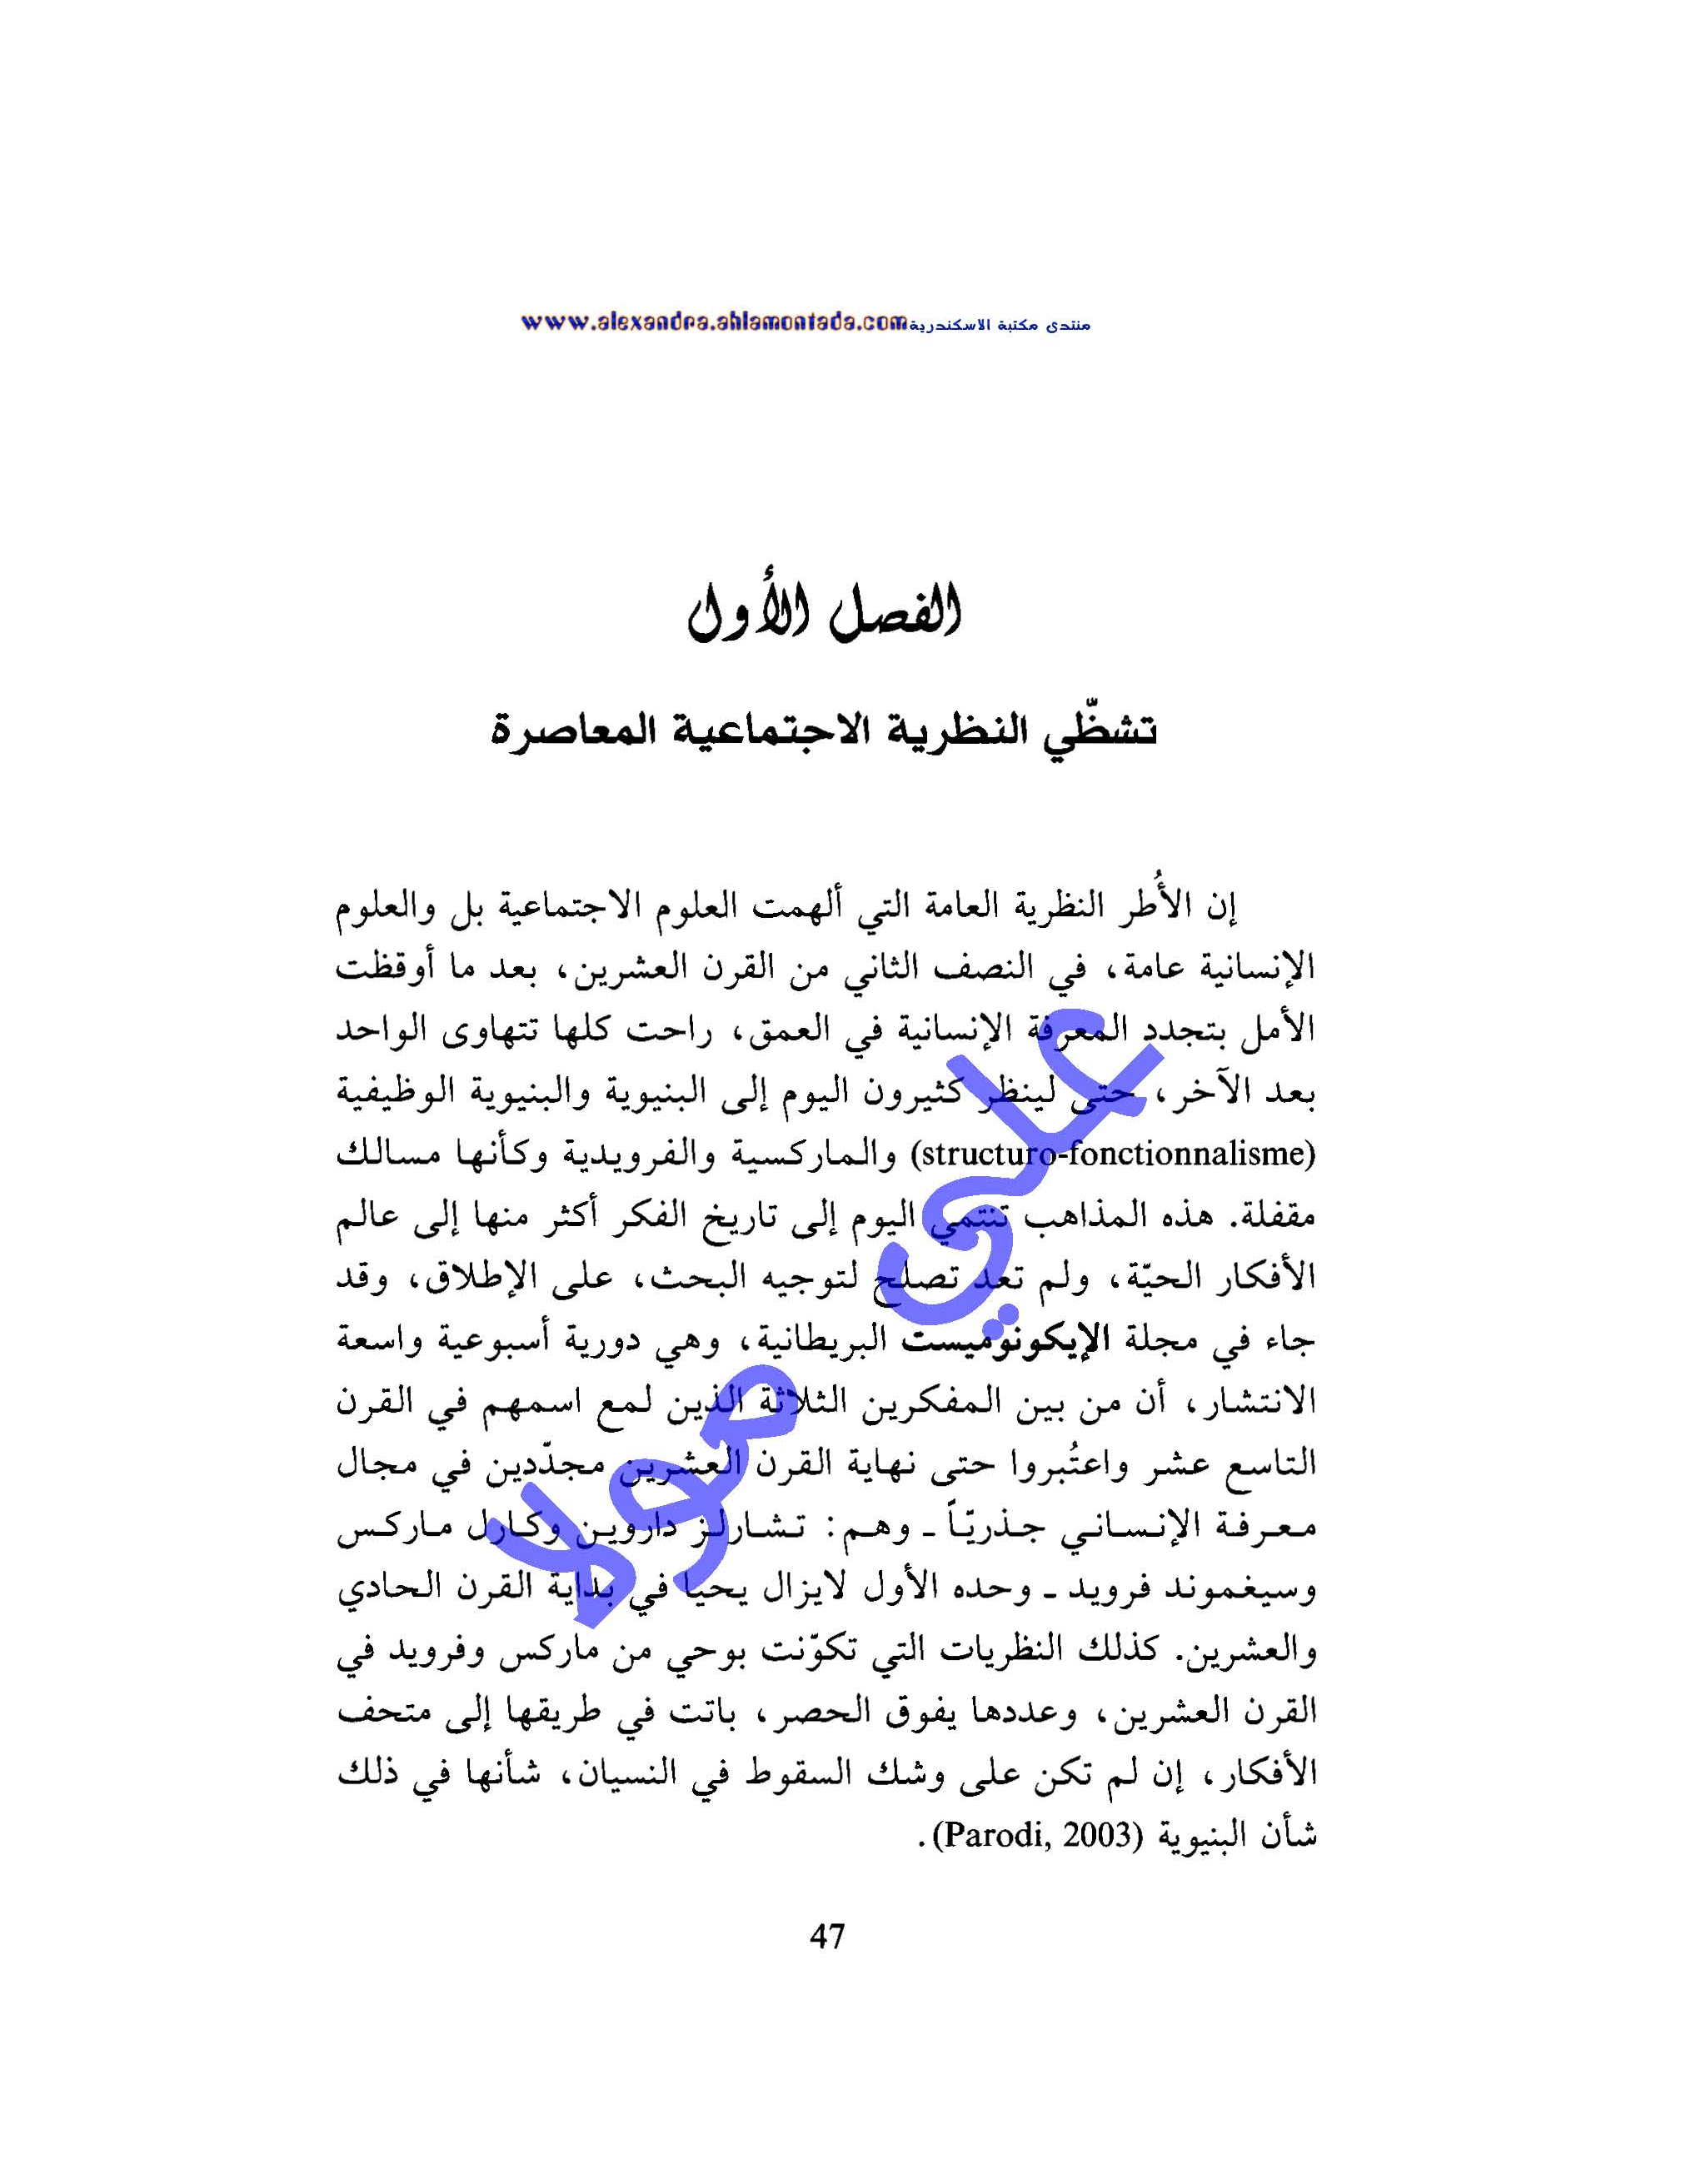 منتدى مكتبة الاسكندرية www.alexandra.ahlamontada.com
الفصل الأول
تشظّي النظرية الاجتماعية المعاصرة
إن الأُطر النظرية العامة التي ألهمت العلوم الاجتماعية بل والعلوم
الإنسانية عامة، في النصف الثاني من القرن العشرين، بعد ما أوقظت
الأمل بتجدد المعرفة الإنسانية في العمق، راحت كلها تتهاوى الواحد
بعد الآخر، حتى لينظر كثيرون اليوم إلى البنيوية والبنيوية الوظيفية
(structuro-fonctionnalisme) والماركسية والفرويدية وكأنها مسالك
مقفلة. هذه المذاهب تنتمي اليوم إلى تاريخ الفكر أكثر منها إلى عالم
الأفكار الحيّة، ولم تعد تصلح لتوجيه البحث، على الإطلاق، وقد
جاء في مجلة الإيكونوميست البريطانية، وهي دورية أسبوعية واسعة
الانتشار، أن من بين المفكرين الثلاثة الذين لمع اسمهم في القرن
التاسع عشر واعتُبروا حتى نهاية القرن العشرين مجدّدين في مجال
معرفة الإنساني جذريّاً ـ وهم: تشارلز داروين وكارل ماركس
وسيغموند فرويد ـ وحده الأول لايزال يحيا في بداية القرن الحادي
والعشرين. كذلك النظريات التي تكوّنت بوحي من ماركس وفرويد في
القرن العشرين، وعددها يفوق الحصر، باتت في طريقها إلى متحف
الأفكار، إن لم تكن على وشك السقوط في النسيان، شأنها في ذلك
شأن البنيوية (Parodi, 2003).
علي مولا
47